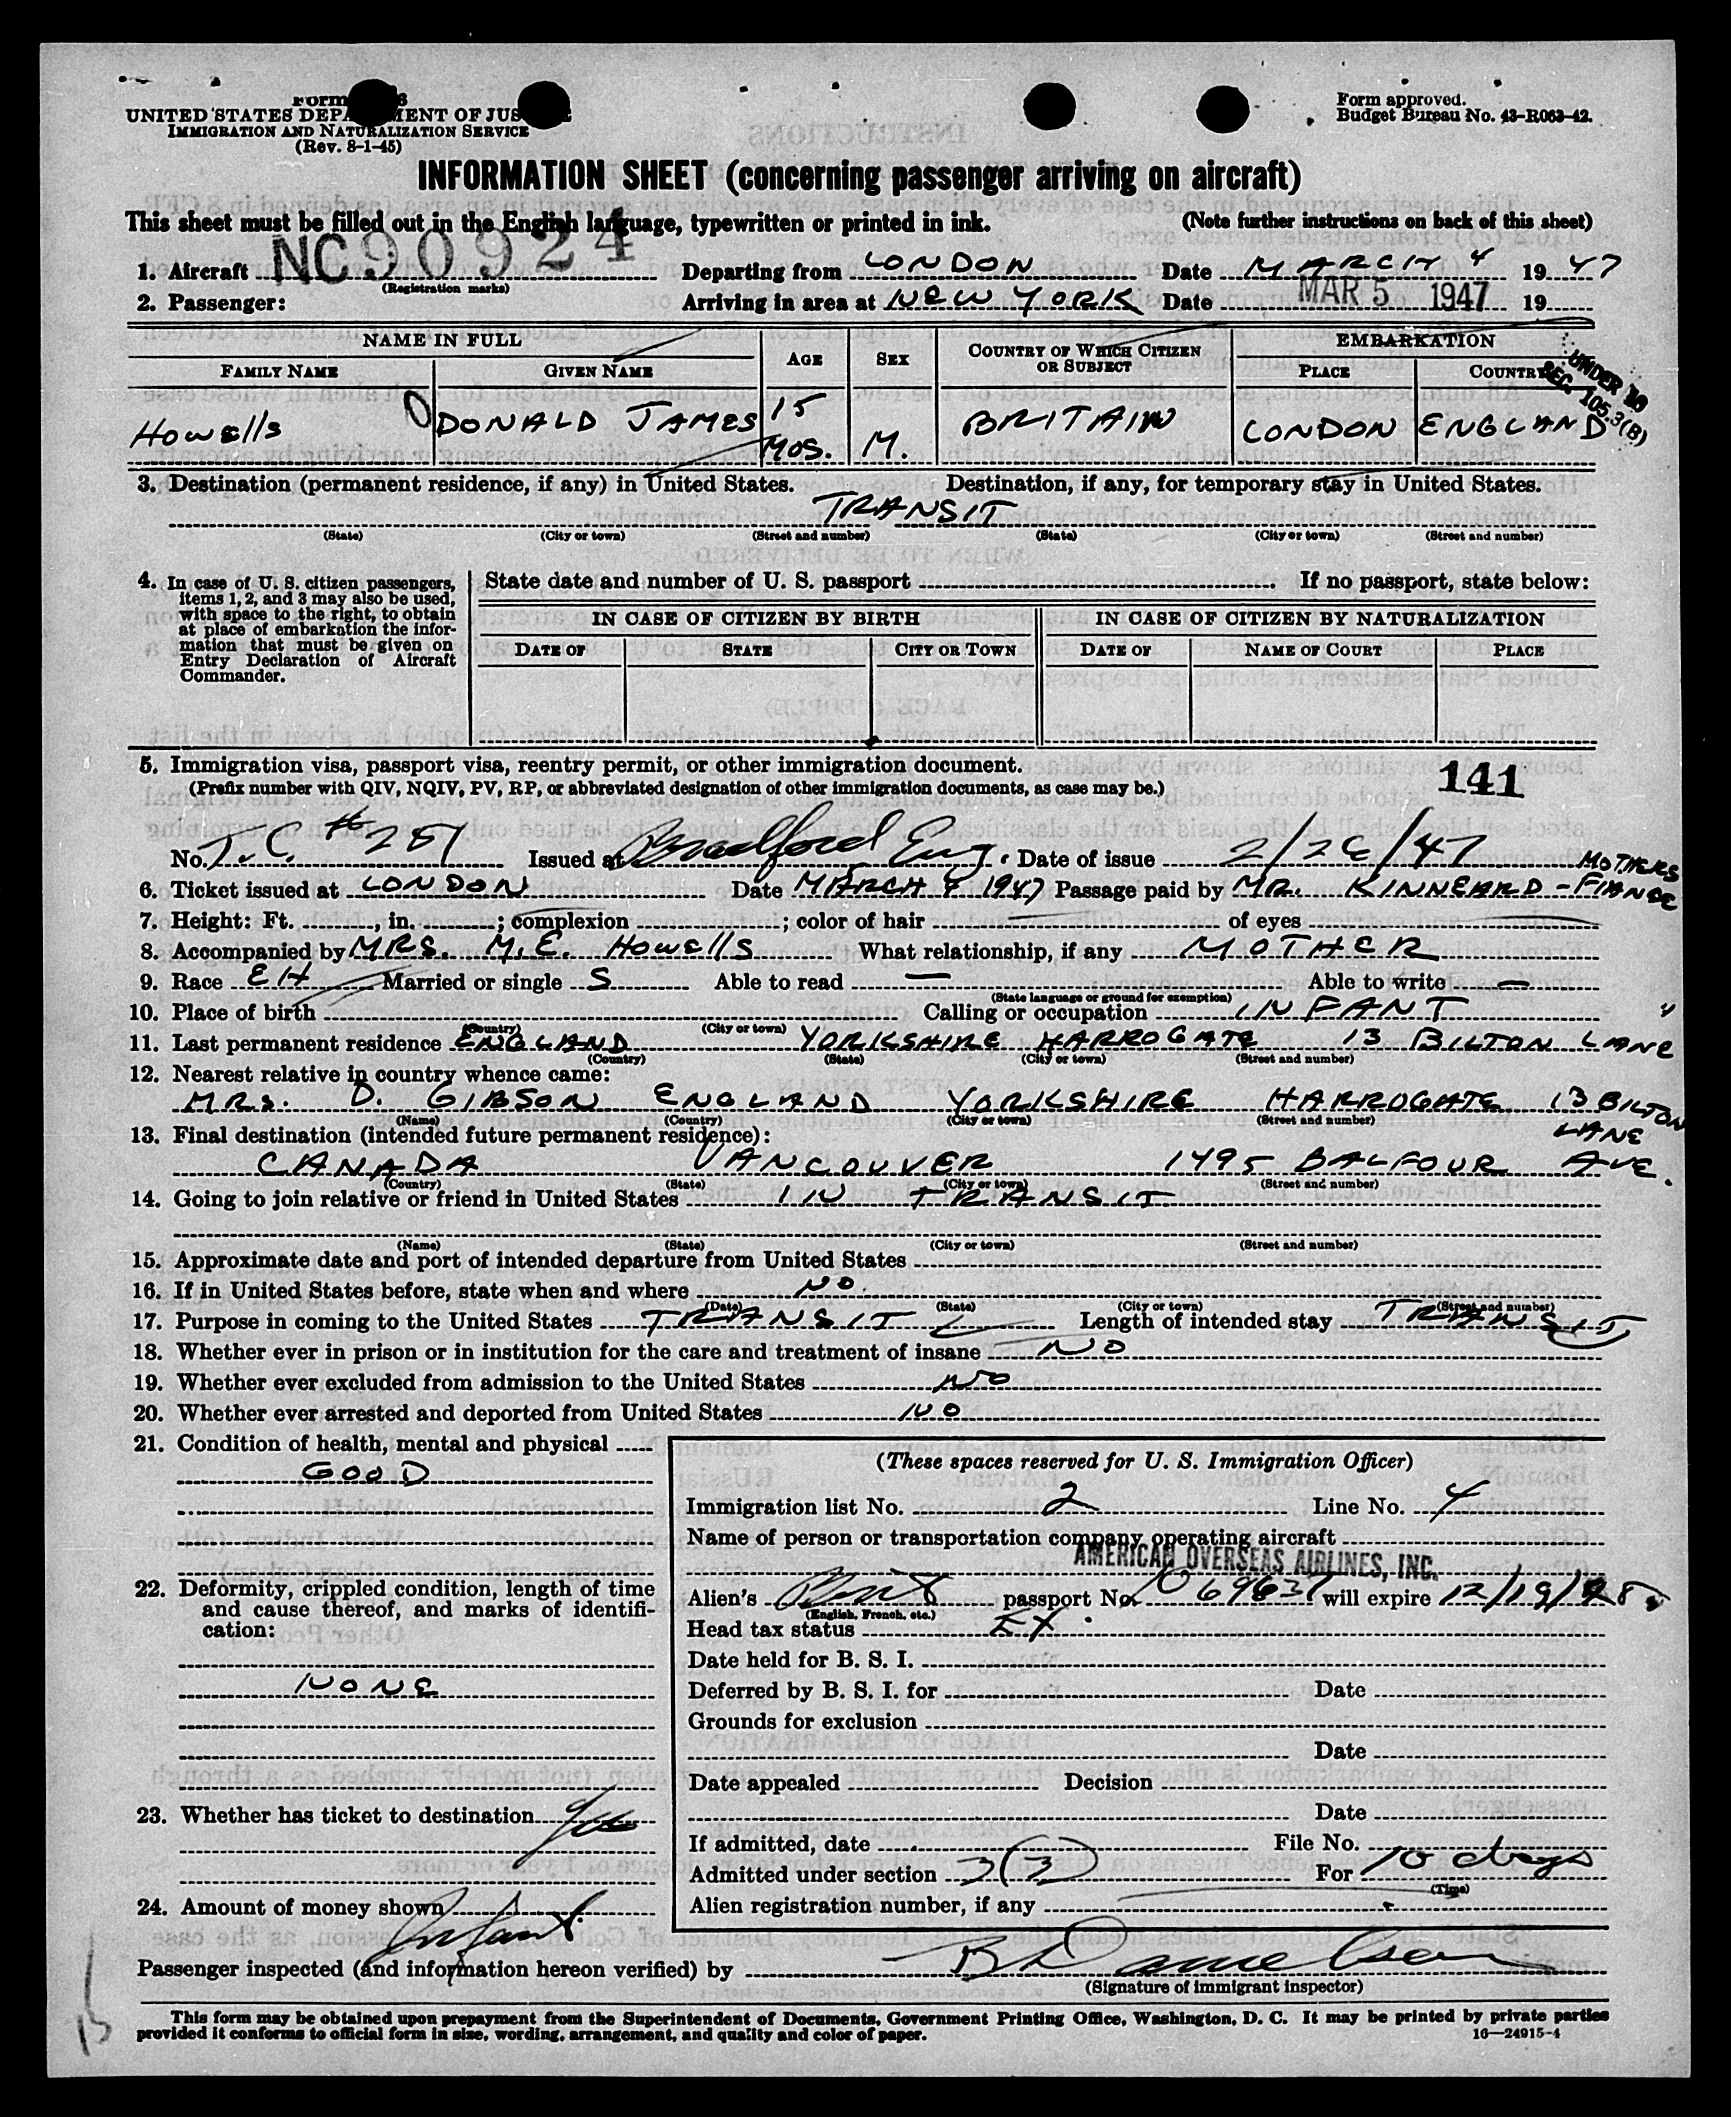 UNITED STATES DEPARTMENT OF JUSTICE
IMMIGRATION AND NATURALIZATION SERVICE
(Rev. 8-1-45)
Form approved.
Budget Bureau No. 43-R063-42.
INFORMATION SHEET (concerning passenger arriving on aircraft)
This sheet must be filled out in the English language, typewritten or printed in ink. (Note further instructions on back of this sheet)
1. Aircraft NC90924 Departing from LONDON Date MARCH 4 1947
(Registration marks)
2. Passenger: Arriving in area at NEW YORK Date MAR 5 1947 19
NAME IN FULL AGE SEX COUNTRY OF WHICH CITIZEN OR SUBJECT EMBARKATION
FAMILY NAME GIVEN NAME PLACE COUNTRY
UNDER 16
SEC. 105.3(B)
Howells DONALD JAMES 15 MOS. M. BRITAIN LONDON ENGLAND
3. Destination (permanent residence, if any) in United States. Destination, if any, for temporary stay in United States.
TRANSIT
(State) (City or town) (Street and number) (State) (City or town) (Street and number)
4. In case of U. S. citizen passengers, items 1, 2, and 3 may also be used, with space to the right, to obtain at place of embarkation the information that must be given on Entry Declaration of Aircraft Commander.
State date and number of U. S. passport If no passport, state below:
IN CASE OF CITIZEN BY BIRTH IN CASE OF CITIZEN BY NATURALIZATION
DATE OF STATE CITY OR TOWN DATE OF NAME OF COURT PLACE
5. Immigration visa, passport visa, reentry permit, or other immigration document. 141
(Prefix number with QIV, NQIV, PV, RP, or abbreviated designation of other immigration documents, as case may be.)
No. T.C. #281 Issued at Bradford Eng. Date of issue 2/26/47
6. Ticket issued at LONDON Date MARCH 4 1947 Passage paid by MR. KINNEARD - MOTHERS FIANCE
7. Height: Ft. , in. ; complexion ; color of hair of eyes
8. Accompanied by MRS. M.E. Howells What relationship, if any MOTHER
9. Race EH Married or single S Able to read — Able to write —
(State language or ground for exemption)
10. Place of birth Calling or occupation INFANT
(Country) (City or town)
11. Last permanent residence ENGLAND YORKSHIRE HARROGATE 13 BILTON LANE
(Country) (State) (City or town) (Street and number)
12. Nearest relative in country whence came:
MRS. D. GIBSON ENGLAND YORKSHIRE HARROGATE 13 BILTON LANE
(Name) (Country) (City or town) (Street and number)
13. Final destination (intended future permanent residence):
CANADA VANCOUVER 1495 BALFOUR AVE.
(Country) (State) (City or town) (Street and number)
14. Going to join relative or friend in United States IN TRANSIT
(Name) (State) (City or town) (Street and number)
15. Approximate date and port of intended departure from United States
16. If in United States before, state when and where NO.
(Date) (State) (City or town) (Street and number)
17. Purpose in coming to the United States TRANSIT Length of intended stay TRANSIT
18. Whether ever in prison or in institution for the care and treatment of insane NO
19. Whether ever excluded from admission to the United States NO
20. Whether ever arrested and deported from United States NO
21. Condition of health, mental and physical
GOOD
22. Deformity, crippled condition, length of time and cause thereof, and marks of identification:
NONE
23. Whether has ticket to destination Yes
24. Amount of money shown Infant
(These spaces reserved for U. S. Immigration Officer)
Immigration list No. 2 Line No. 4
Name of person or transportation company operating aircraft
AMERICAN OVERSEAS AIRLINES, INC.
Alien's Brit passport No. will expire
(English, French, etc.)
Head tax status EX
Date held for B. S. I.
Deferred by B. S. I. for Date
Grounds for exclusion
Date
Date appealed Decision
Date
If admitted, date File No.
Admitted under section 3(3) For 10 days
(Time)
Alien registration number, if any
Passenger inspected (and information hereon verified) by
(Signature of immigrant inspector)
This form may be obtained upon prepayment from the Superintendent of Documents, Government Printing Office, Washington, D. C. It may be printed by private parties
provided it conforms to official form in size, wording, arrangement, and quality and color of paper. 16—24915-4